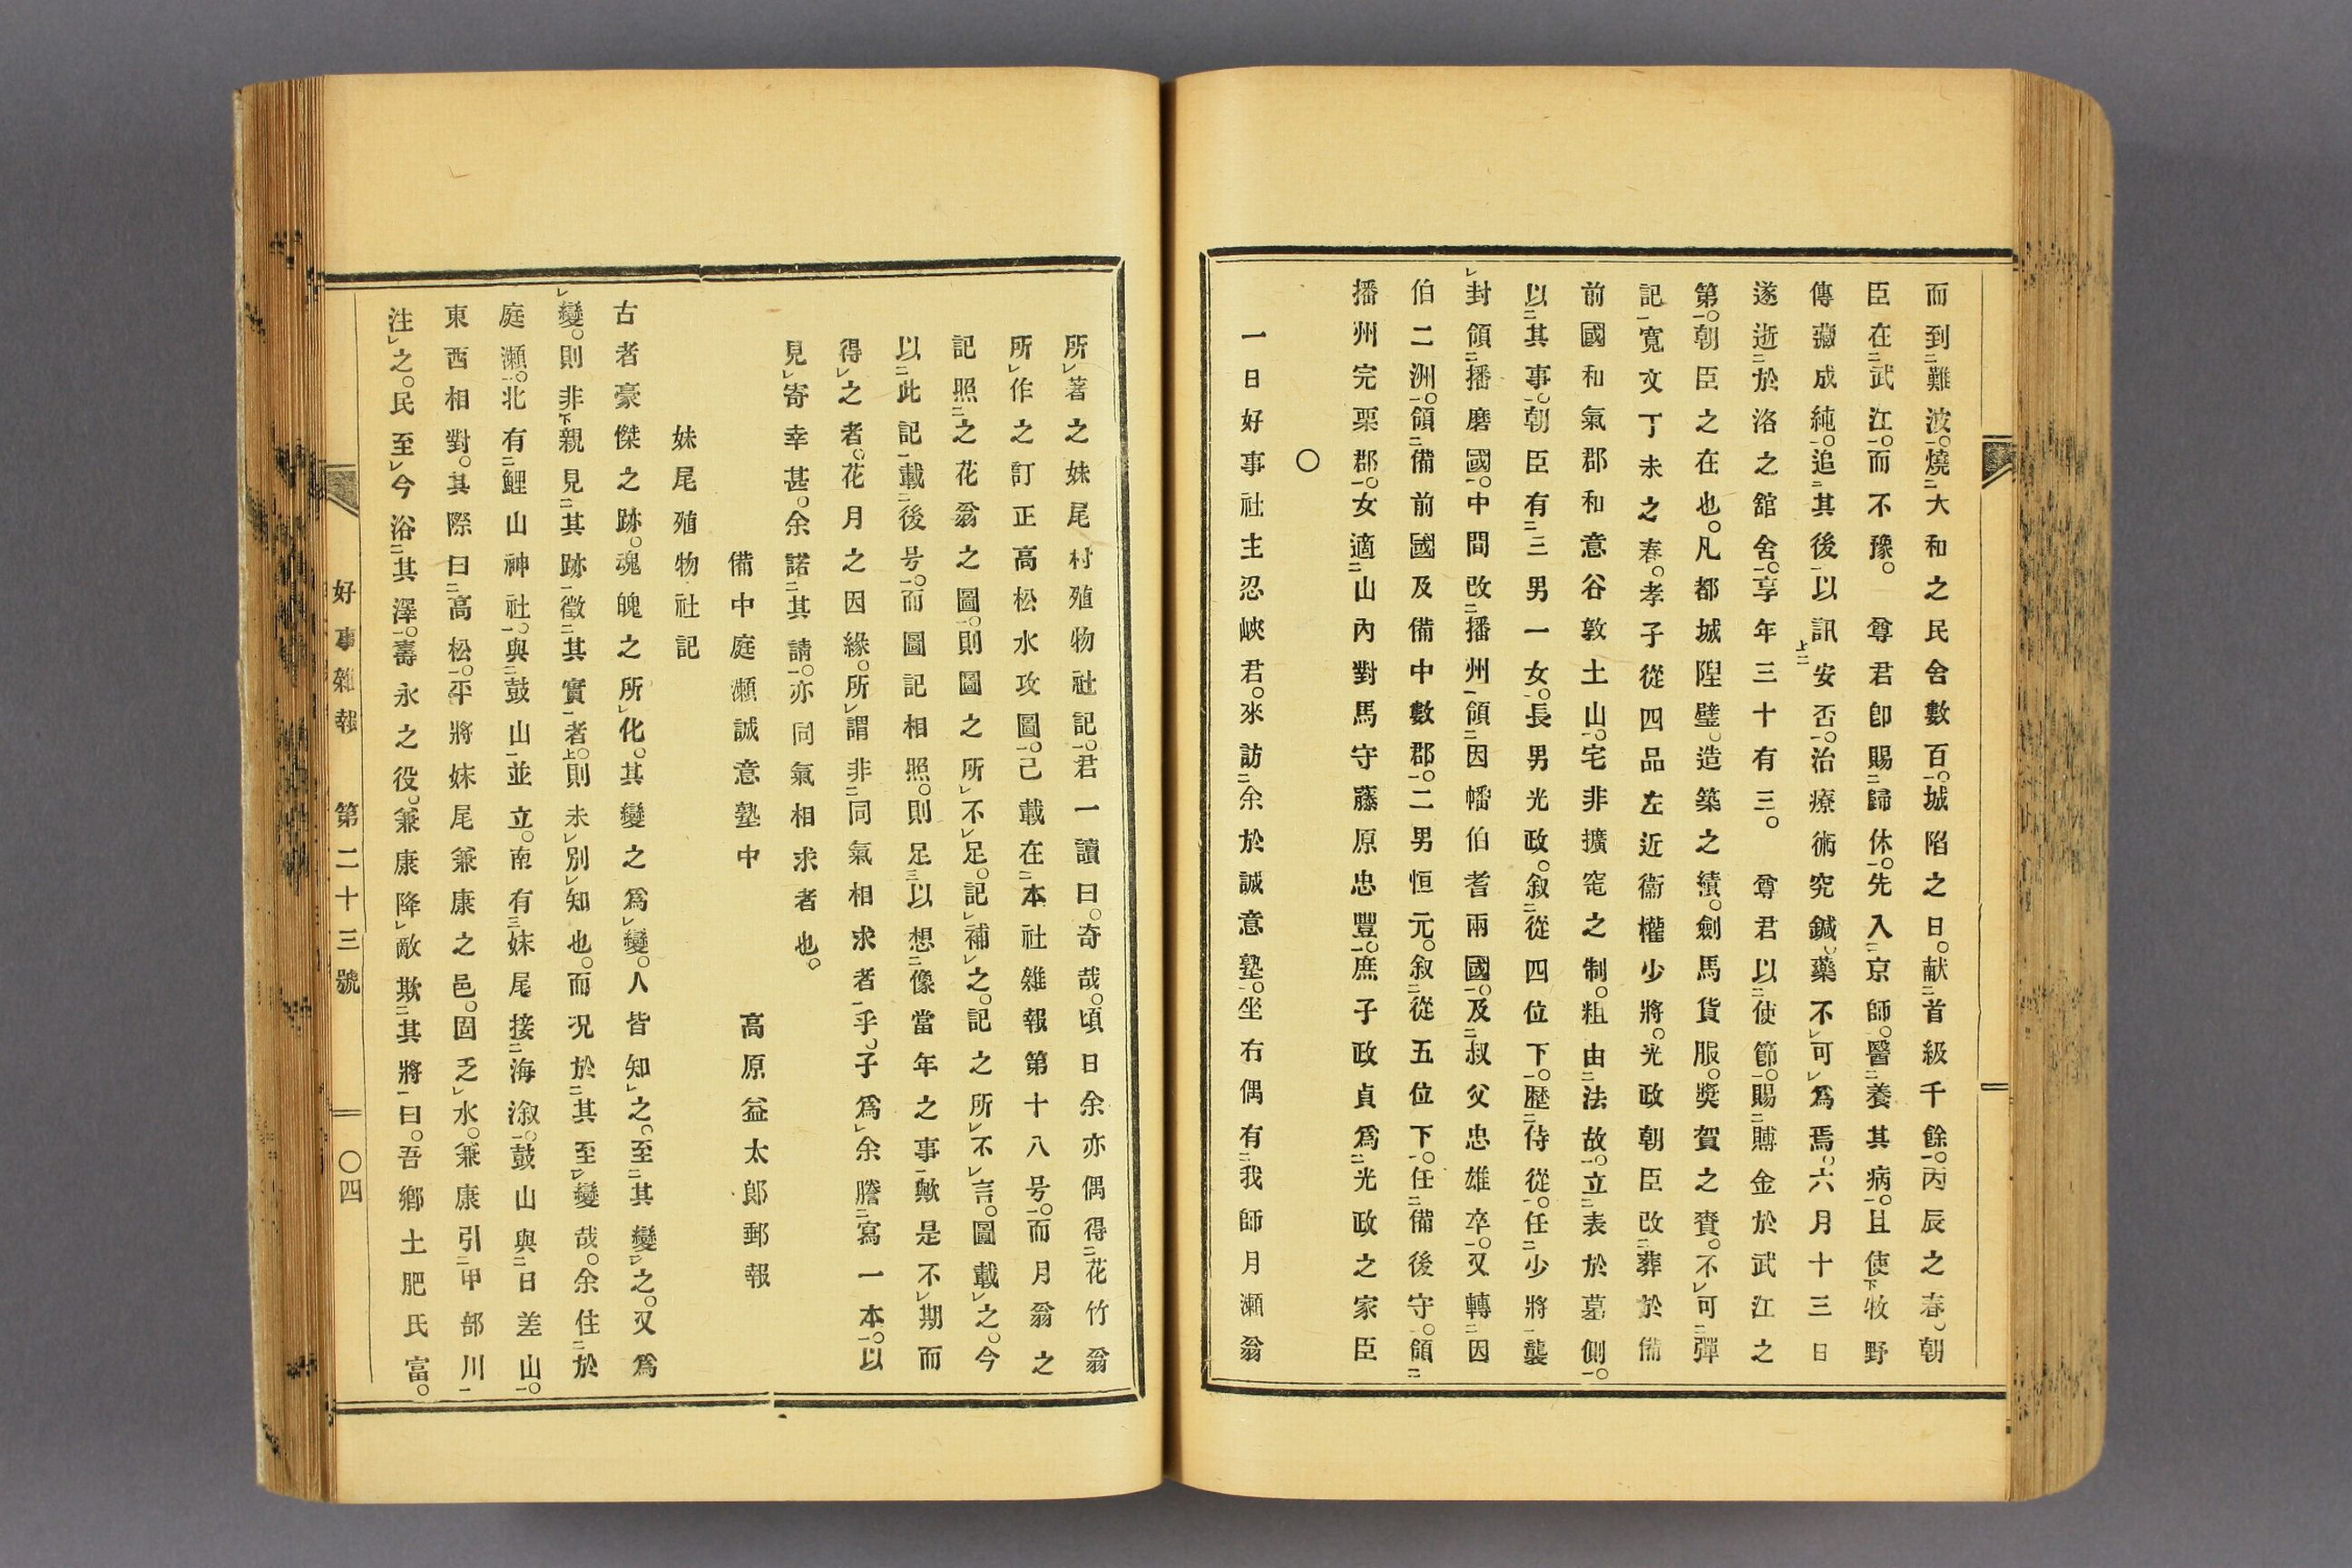 而到難波。燒大和之民舍數百。城陷之日。献首級千餘。丙辰之春。朝
臣在武江。而不豫。　尊君卽賜歸休。先入京師。醫養其病。且使牧野
傳藏成純。追其後以訊安否。治療術究鍼。藥不可爲焉。六月十三日
遂逝於洛之舘舍。享年三十有三。　尊君以使節。賜賻金於武江之
第。朝臣之在也。凡都城隍壁。造築之績。劍馬貨服。奬賀之賚。不可彈
記。寛文丁未之春。孝子從四品左近衞權少將。光政朝臣改葬於備
前國和氣郡和意谷敦土山。宅非擴窀之制。粗由法故。立表於墓側。
以其事。朝臣有三男一女。長男光政。叙從四位下。歷侍從。任少將襲
封領播磨國。中間改播州領因幡伯耆兩國。及叔父忠雄卒。又轉因
伯二洲。領備前國及備中數郡。二男恒元。叙從五位下。任備後守。領
播州完栗郡。女適山內對馬守藤原忠豐。庶子政貞爲光政之家臣
〇
一日好事社主忍峽君。來訪余於誠意塾。坐右偶有我師月瀬翁
所著之妹尾村殖物社記。君一讀曰。奇哉。頃日余亦偶得花竹翁
所作之訂正高松水攻圖。己載在本社雜報第十八号。而月翁之
記照之花翁之圖。則圖之所不足。記補之。記之所不言。圖載之。今
以此記載後号。而圖記相照。則足以想像當年之事歟是不期而
得之者。花月之因緣。所謂非同氣相求者乎。子爲余謄寫一本。以
見寄幸甚。余諾其請。亦同氣相求者也。
備中庭瀬誠意塾中　高原益太郎郵報
妹尾殖物社記
古者豪傑之跡。魂魄之所化。其變之爲變。人皆知之。至其變之。又爲
變。則非親見其跡徵其實者。則未別知也。而況於其至變哉。余住於
庭瀬。北有鯉山神社。與鼓山並立。南有妹尾接海溆。鼓山與日差山。
東西相對。其際曰高松。平將妹尾兼康之邑。固乏水。兼康引甲部川
注之。民至今浴其澤。壽永之役。兼康降敵欺其將曰。吾鄉土肥民富。
好事雜報　第二十三號　〇四